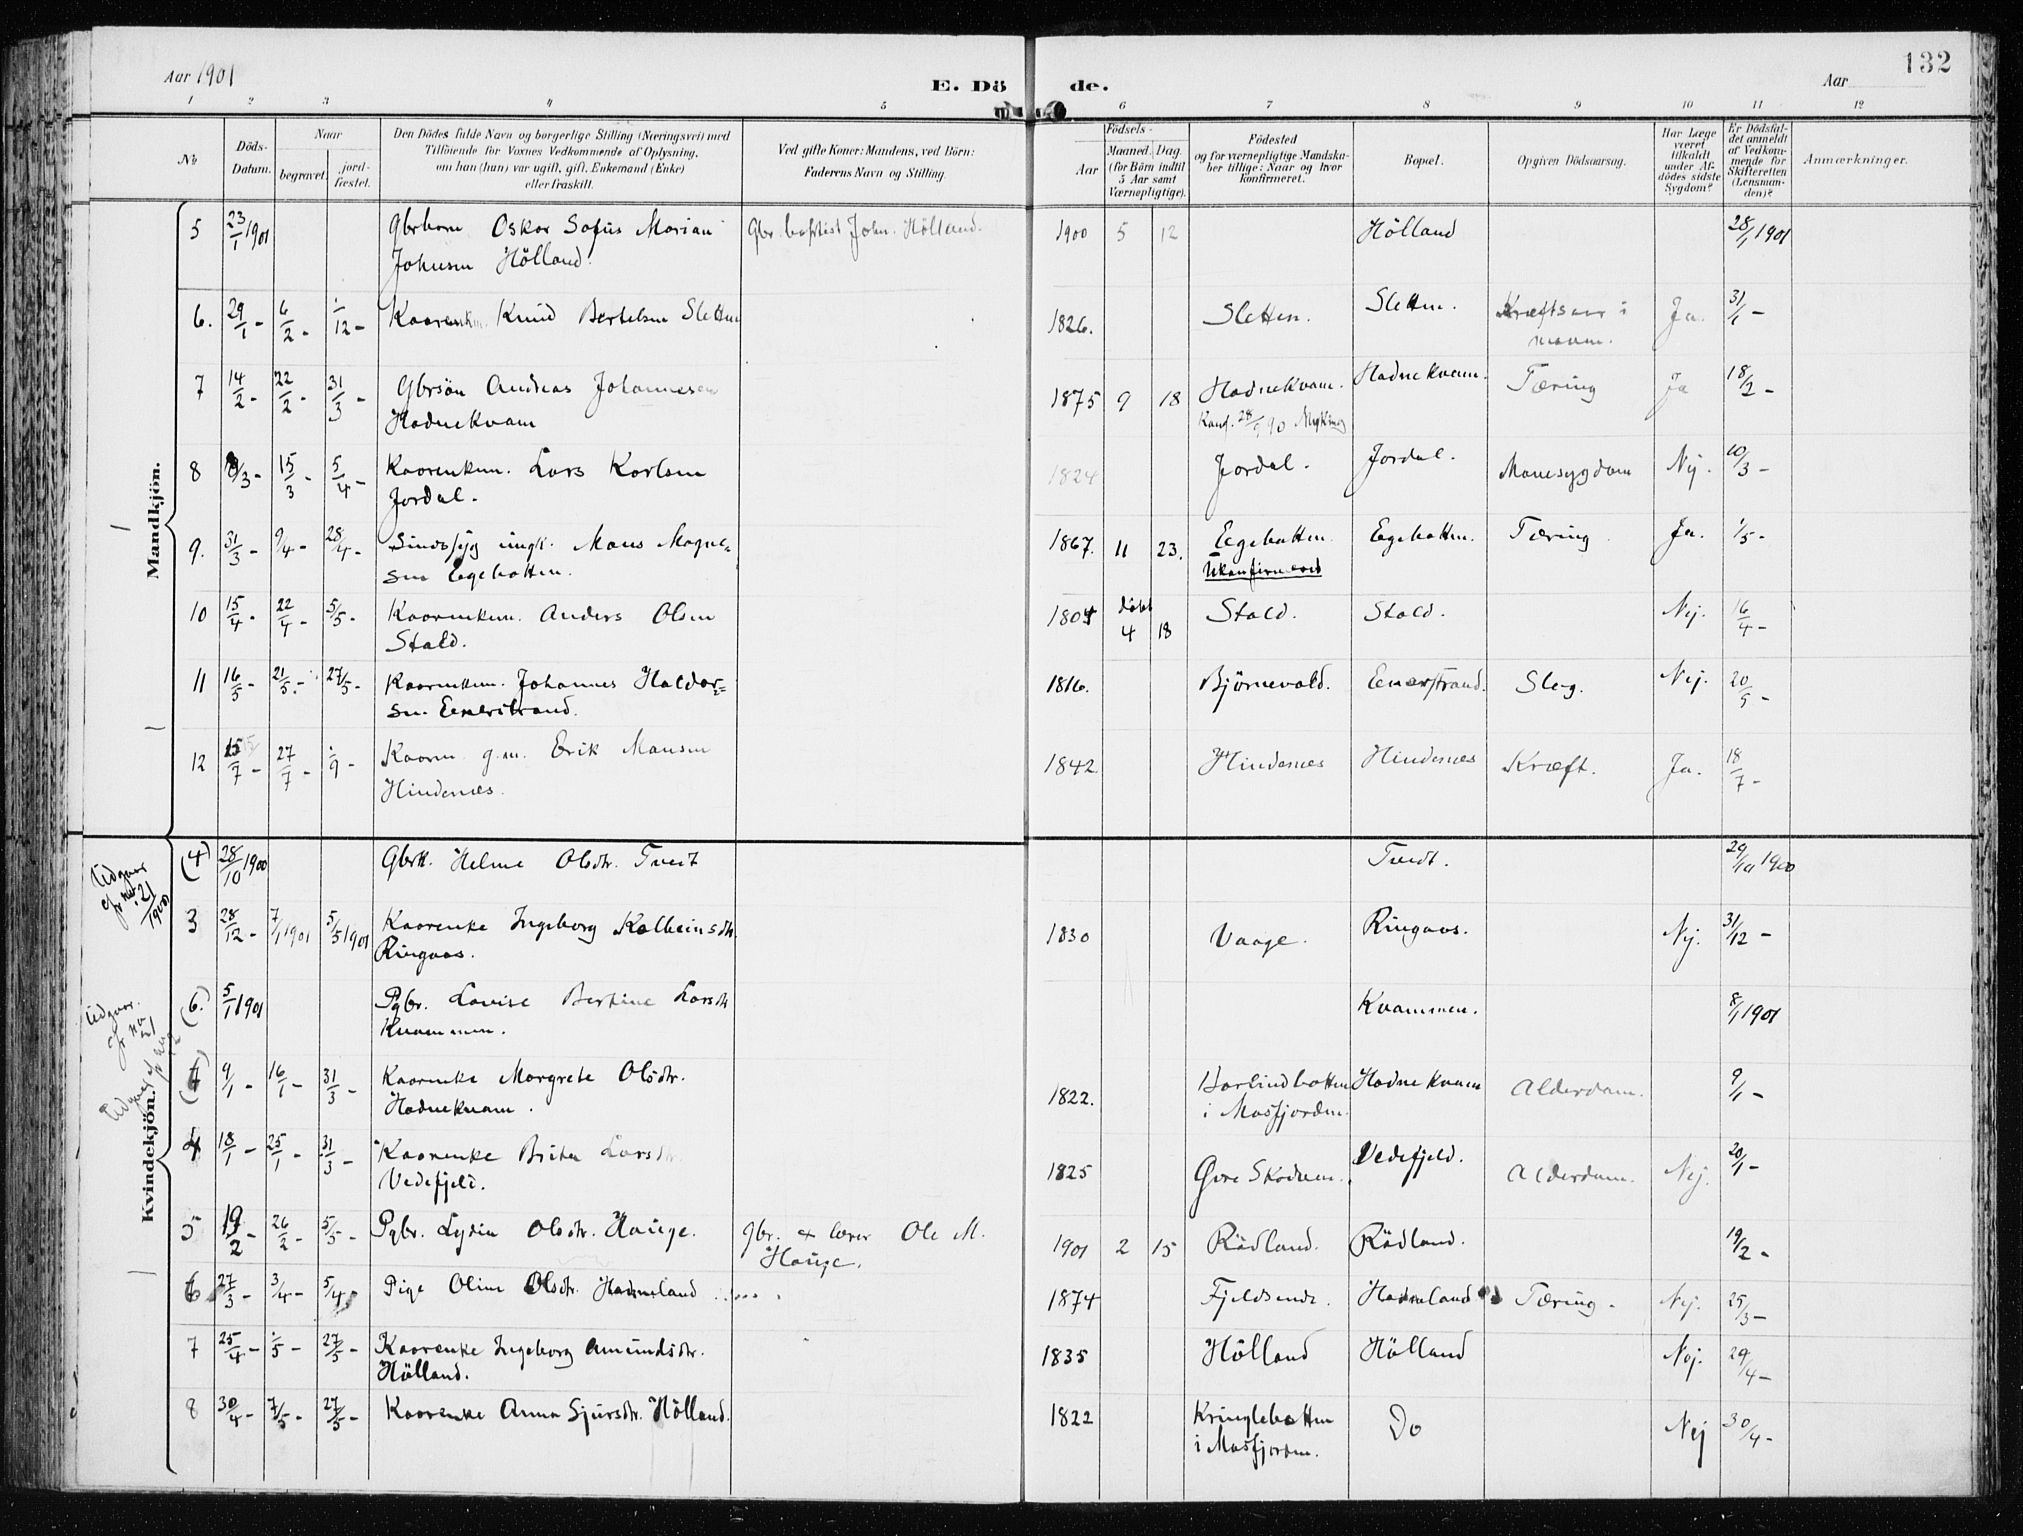 Aar 1901
E. Dö
de.
Aar
132
1 2 3 4 5 6 7 8 9 10 11 12
No
Döds-
Datum.
Naar
begravet.
jord-
fæstet.
Den Dödes fulde Navn og borgerlige Stilling (Næringsvei) med
Tilföiende for Voxnes Vedkommende af Oplysning,
om han (hun) var ugift, gift, Enkemand (Enke)
eller fraskilt.
Ved gifte Koner: Mandens, ved Börn:
Faderens Navn og Stilling.
Födsels-
Aar
Maaned. Dag.
(for Börn indtil
5 Aar samt
Værnepligtige).
Födested
og for værnepligtige Mandska-
ber tillige: Naar og hvor
konfirmeret.
Bopæl.
Opgiven Dödsaarsag.
Har Læge
været
tilkaldt
under Af-
dödes sidste
Sygdom?
Er Dödsfal-
det anmeldt
af Vedkom-
mende for
Skifteretten
(Lensman-
den)?
Anmærkninger.
Mandkjön.
5 23/1 1901 Gbrbarn Oskar Sofus Marian Gbr. baptist John. Hölland. 1900 5 12 Hölland 28/1 1901
Johnsen Hölland.
6. 29/1 - 6/2 - 1/12 - Kaarenkm. Knud Bertelsen Sletten 1826. Sletten. Sletten. Kræftsaar i Ja. 31/1 -
maven.
7 14/2 - 22/2 - 31/3 - Gbrsön Andreas Johannesen 1875 9 18 Hadnekvam. Hadnekvam. Tæring Ja 18/2 -
Hadnekvam Konf. 90
8 8/3 - 15/3 - 5/4 - Kaarenkm. Lars Karlsen 1824 Jordal. Jordal. Mavesygdom Nej. 10/3 -
Jordal.
9. 31/3 - 9/4 - 28/4 - Sindssyg ungk. Mons Magne= 1867. 11 23. Eegebotten. Egebotten. Tæring Ja. 1/5 -
sen Egebotten. Ukonfirmeret
10 15/4 - 22/4 - 5/5 - Kaarenkm. Anders Olsen 1804 döbt 4 18 Stald. Stald. Nej. 16/4 -
Stald.
11 16/5 - 21/5 - 27/5 - Kaarenkm. Johannes Haldor= 1816. Björnevold. Eenerstrand. Slag. Nej. 20/5 -
sen Eenerstrand.
12 15/7 - 27/7 - 1/9 - Kaarm. g.m. Erik Monsen 1842 Hindenes Hindenæs Kræft. Ja. 18/7 -
Hindenæs.
Kvindekjön.
Udgaar
21/1900
(4) 28/10 1900 Gbrk. Helene Olsdtr. Tveit Tveit. 29/10 1900
3 28/12 - 7/1 1901 5/5 1901 Kaarenke Ingeborg Kolbeinsdtr. 1830 Vaage. Ringaas. Nej. 31/12 -
Ringaas.
Udgaar.
(6.) 5/1 1901 Pgbr. Lovise Bertine Larsdtr. Kvammen. 8/1 1901
Kvammen.
9/1 - 16/1 - 31/3 - Kaarenke Margrete Olsdtr. 1822. Haslindbotten Hadnekvam Alderdom. 9/1 -
Hadnekvam. i Masfjorden.
4 18/1 - 25/1 - 31/3 - Kaarenke Brita Larsdtr. 1825 Övre Skodven. Vedefjeld. Alderdom. Nej. 20/1 -
Vedefjeld.
5 19/2 - 26/2 - 5/5 - Pgbr. Lydia Olsdtr. Hauge. gbr. & lærer Ole M. 1901 2 15 Rödland. Rödland. 19/2 -
Hauge.
6 27/3 - 3/4 - 5/4 - Pige Oline Olsdtr. Hadneland 1874 Fjeldsende. Hadneland Tæring. Nej. 25/3 -
7 25/4 - 1/5 - 27/5 - Kaarenke Ingeborg Amundsdtr. 1835 Hölland Hölland Nej. 29/4 -
Hölland.
8 30/4 - 7/5 - 27/5 - Kaarenke Anna Sjursdtr. Hölland. 1822 Kringlebotten Do Nej 30/4 -
i Masfjorden.